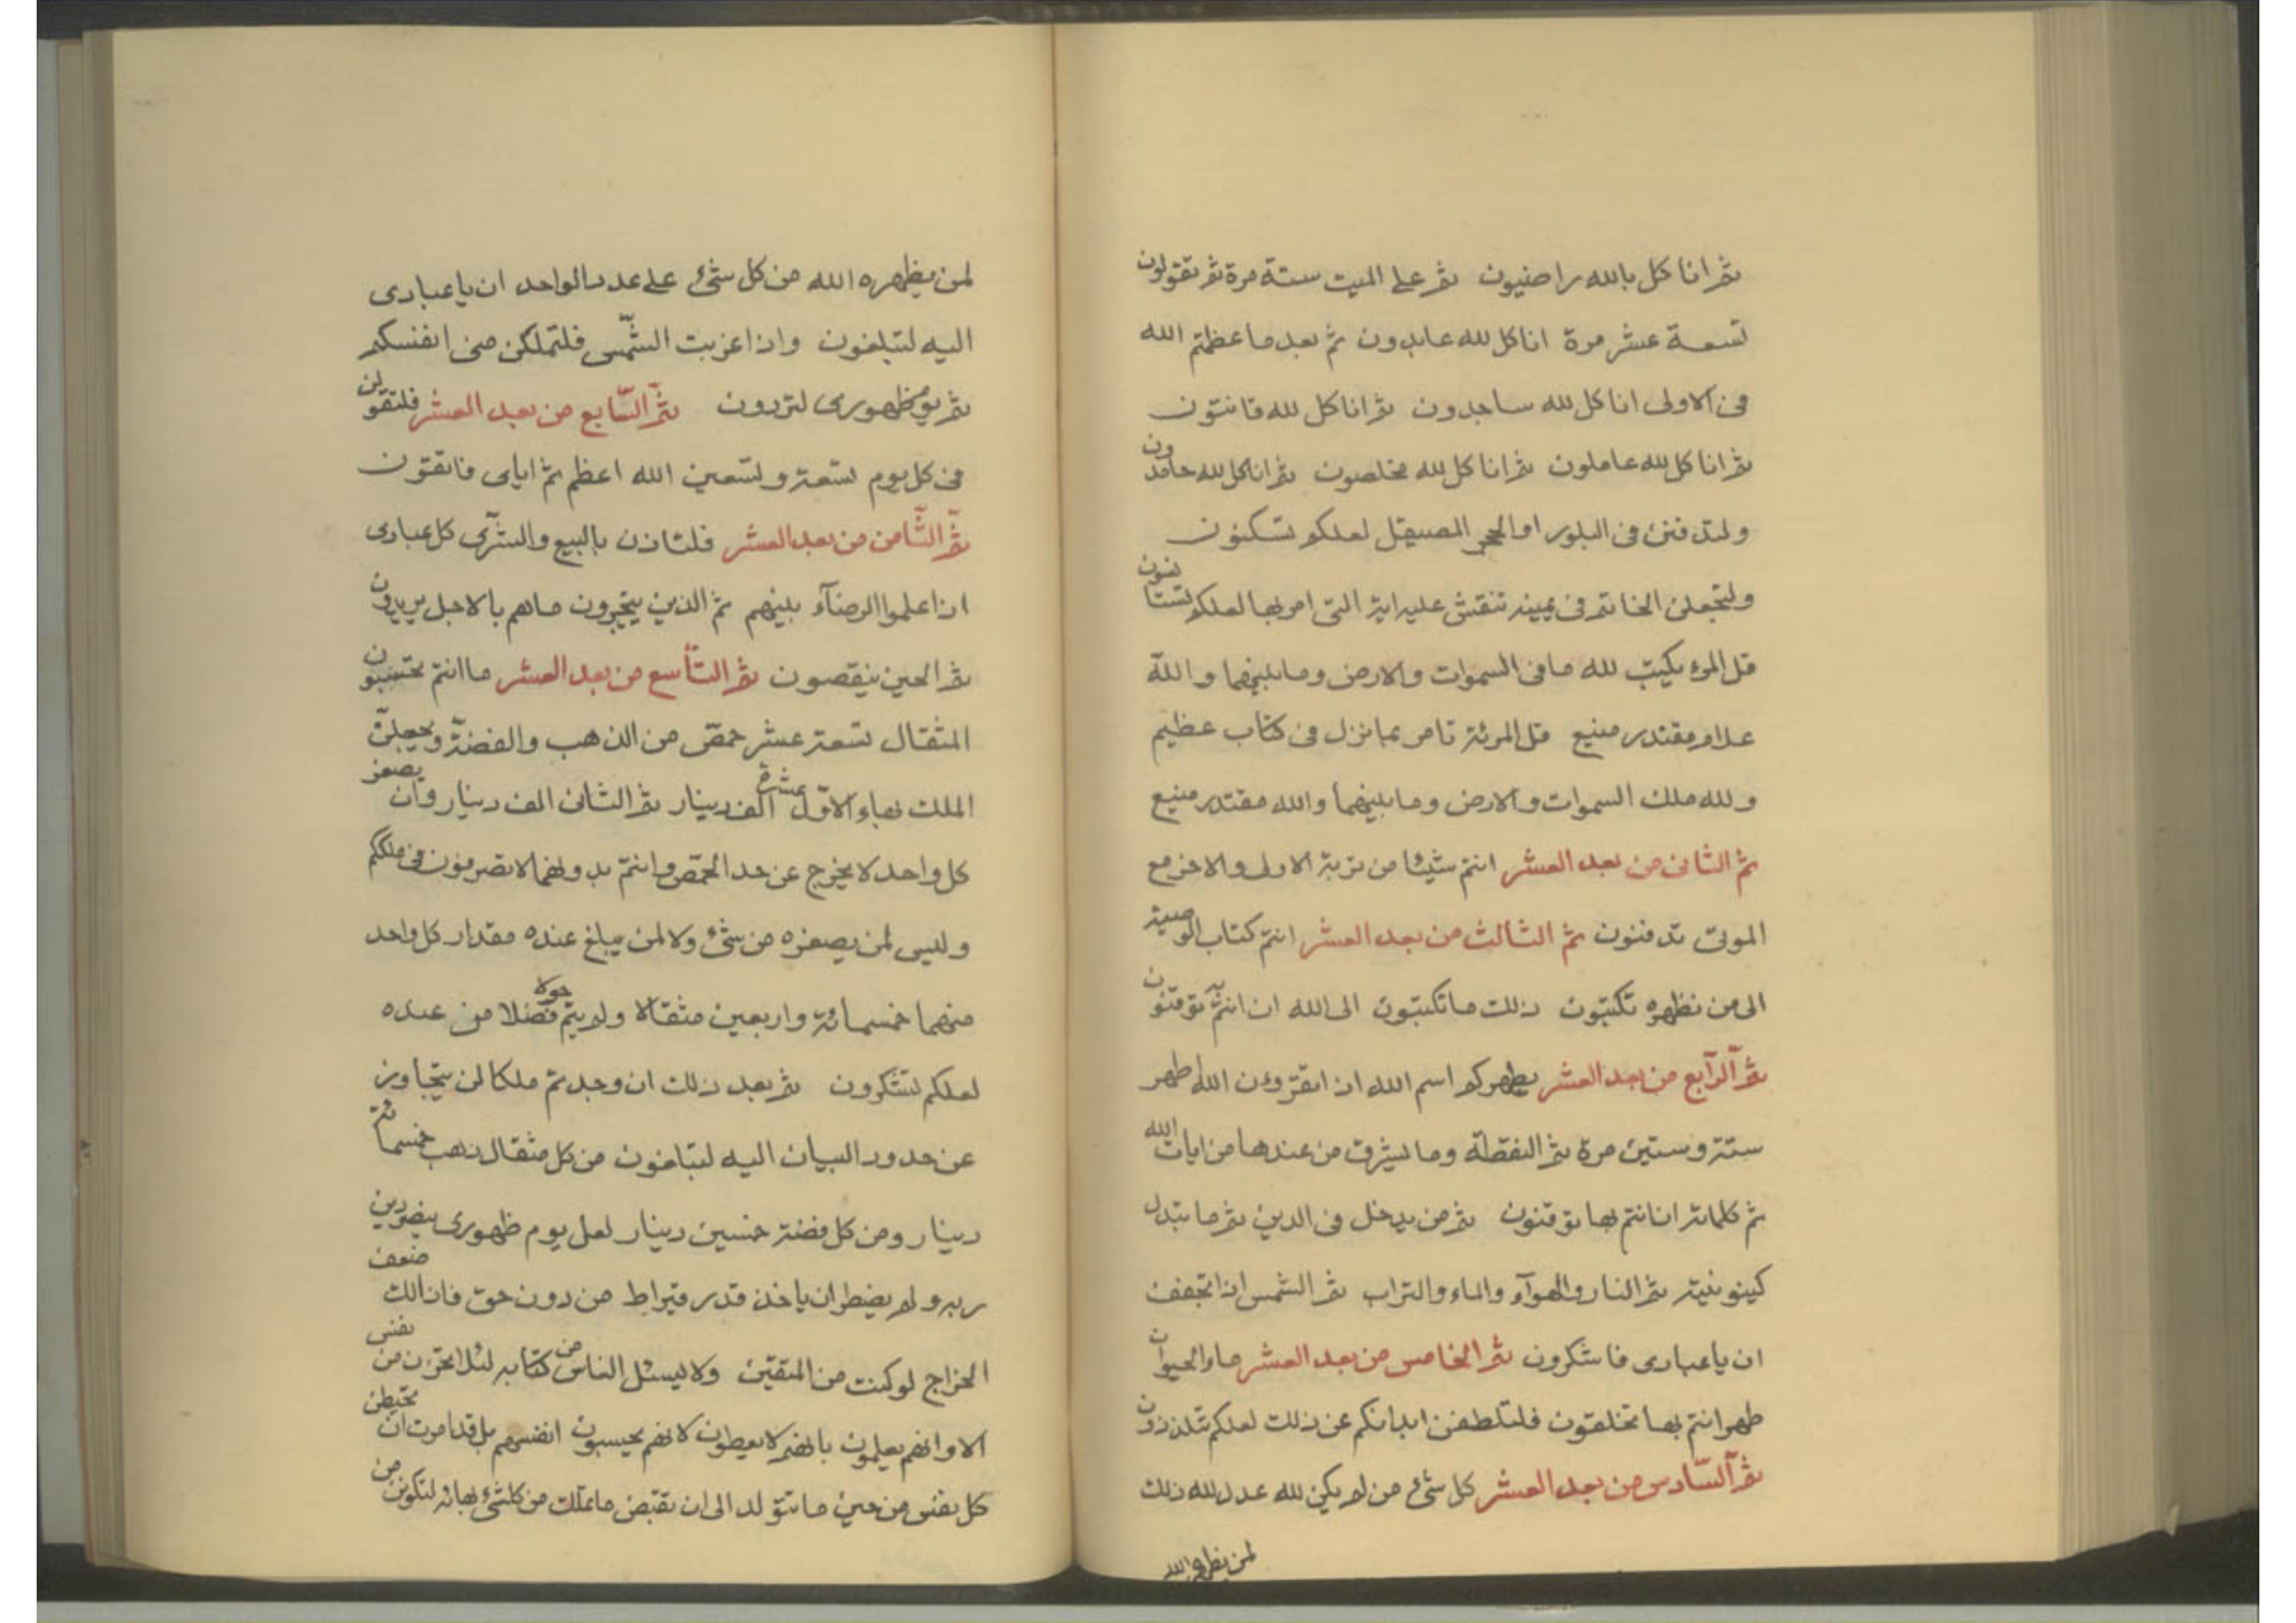 ثم انا كل بالله راضيون ثم على الميت ستة مرة ثم تقولون
تسعة عشر مرة انا كل لله عابدون ثم بعد ما عظمتم الله
فى الاولى انا كل لله ساجدون ثم انا كل لله قانتون
ثم انا كل لله عاملون ثم انا كل لله مخلصون ثم انا كل لله حامدون
ولتدفنن فى البلور او الحجر المصيقل لعلكم تسكنون
ولتجعلن الخاتم فى يمينه تنقش عليه اية التى امر بها لعلكم تستانسون
قل المرء يكتب لله ما فى السموات والارض وما بينهما والله
علام مقتدر منيع قل المرئة تامر بما نزل فى كتاب عظيم
ولله ملك السموات والارض وما بينهما والله مقتدر منيع
ثم الثانى من بعد العشر انتم شيئا من تربة الاولى والاخر مع
الموتى تدفنون ثم الثالث من بعد العشر انتم كتاب الوصية
الى من نظهره تكتبون ذلك ما تكتبون الى الله ان انتم به توقنون
ثم الرآبع من بعد العشر يطهركم اسم الله اذا تقرؤن الله اطهر
ستة وستين مرة ثم النقطة وما يشرق من عندها من ايات الله
ثم كلماته ان انتم بها توقنون ثم من يدخل فى الدين ثم ما يتبدل
كينونيته ثم النار والهوآء والماء والتراب ثم الشمس اذا تجفف
ان يا عبادى فاشكرون ثم الخامس من بعد العشر ماء الحيوان
طهر انتم بها تخلقون فلتلطفن ابدانكم عن ذلك لعلكم تتلذذون
ثم السّادس من بعد العشر كل شئ من لم يكن لله عدل لله ذلك
لمن يظهره الله
لمن يظهره الله من كل شئ على عدد الواحد ان يا عبادى
اليه لتبلغون واذا غربت الشّمس فلتملكن من انفسكم
ثم يوم ظهورى لتردون ثم السّابع من بعد العشر فلتقولن
فى كل يوم تسعة وتسعين الله اعظم ثم اياى فاتقون
ثم الثّامن من بعد العشر فلتاذن بالبيع والشرآى كل عبادى
اذا علموا الرضآء بينهم ثم الذين يتجرون ما هم بالاجل يريدون
ثم الحين ينقصون ثم التّاسع من بعد العشر ما انتم تحتسبون
المثقال تسعة عشر حمّص من الذهب والفضّة ويجعلنّ
الملك بهاء الاوّل عشرة الف دينار ثم الثانى الف دينار وان يصغر
كل واحد لا يخرج عن حد الحمّص وانتم بدونهما لا تصرفون فى ملككم
وليس لمن يصغره من شئ ولا لمن يبلغ عنده مقدار كل واحد
منهما خمسمائة واربعين مثقالا ولم يتم حولا فضلا من عنده
لعلكم تشكرون ثم بعد ذلك ان وجدتم ملكا لن يتجاوز
عن حدود البيان اليه لتبلغون من كل مثقال ذهب خمسمائة
دينار ومن كل فضة خمسين دينار لعل يوم ظهورى ينصر دين
ربه ولم يضطر ان ياخذ قدر قيراط من دون حق فان ذلك ضعف
الخراج لو كنت من المتقين ولا يسئل الناس من كتابه لئلا يحزن من نفس
الا وانهم يعلمون بانهم لا يعطون لانهم يحسبون انفسهم بل قد امرت ان تحيطن
كل نفس من حين ما تتولد الى ان تقبض ما تملك من كلشئ بهائه لتكونن من